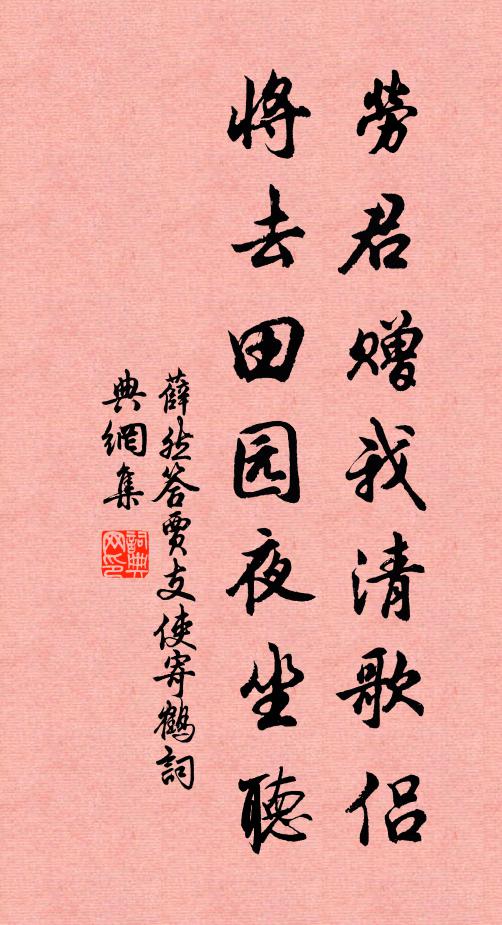 劳君赠我清歌侣
将去田园夜坐听
薛能答贾支使寄鹤词
典网集
词典
网印